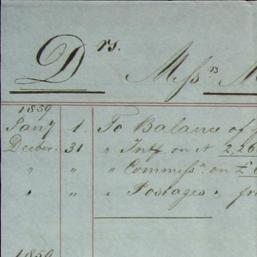 Drs. Messrs M
1859
Jany 1. To Balance of
Decber. 31 " Int on st 2,26
" " " Commissn. on £
" " " Postages "
1859